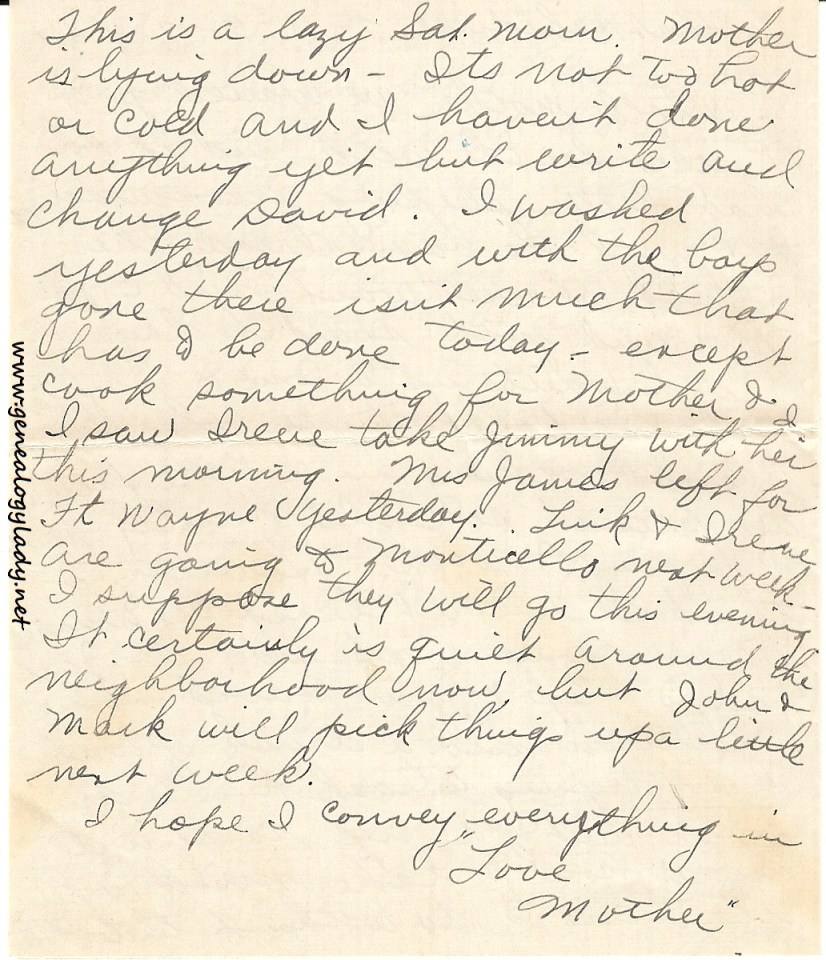 This is a lazy Sat. morn. Mother
is lying down - Its not too hot
or cold and I haven't done
anything yet but write and
change David. I washed
yesterday and with the boys
gone there isn't much that
has to be done today - except
cook something for Mother & I
I saw Irene take Jimmy with her
this morning. Mrs James left for
Ft Wayne yesterday. Luik & Irene
are going to Monticello next week -
I suppose they will go this evening
It certainly is quiet around the
neighborhood now, but John &
Mark will pick things up a little
next week.
I hope I convey everything in
"Love
Mother"
www.genealogylady.net